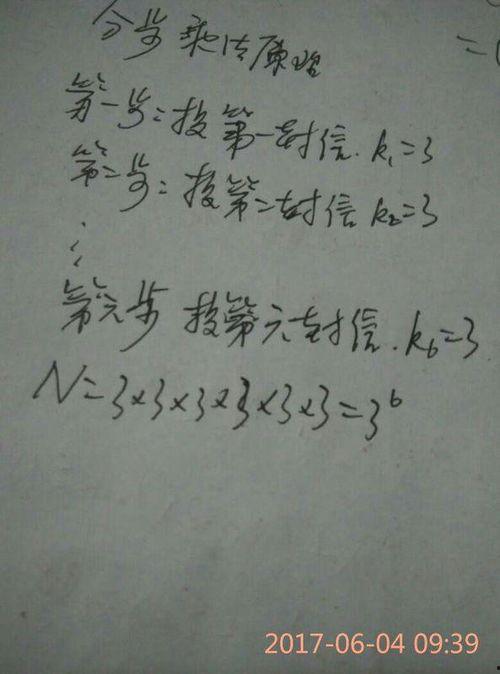 分步乘法原理
=(
第一步:投第一封信. k₁=3
第二步:投第二封信 k₂=3
⋮
第六步 投第六封信. k₆=3
N=3×3×3×3×3×3=3⁶
2017-06-04 09:39